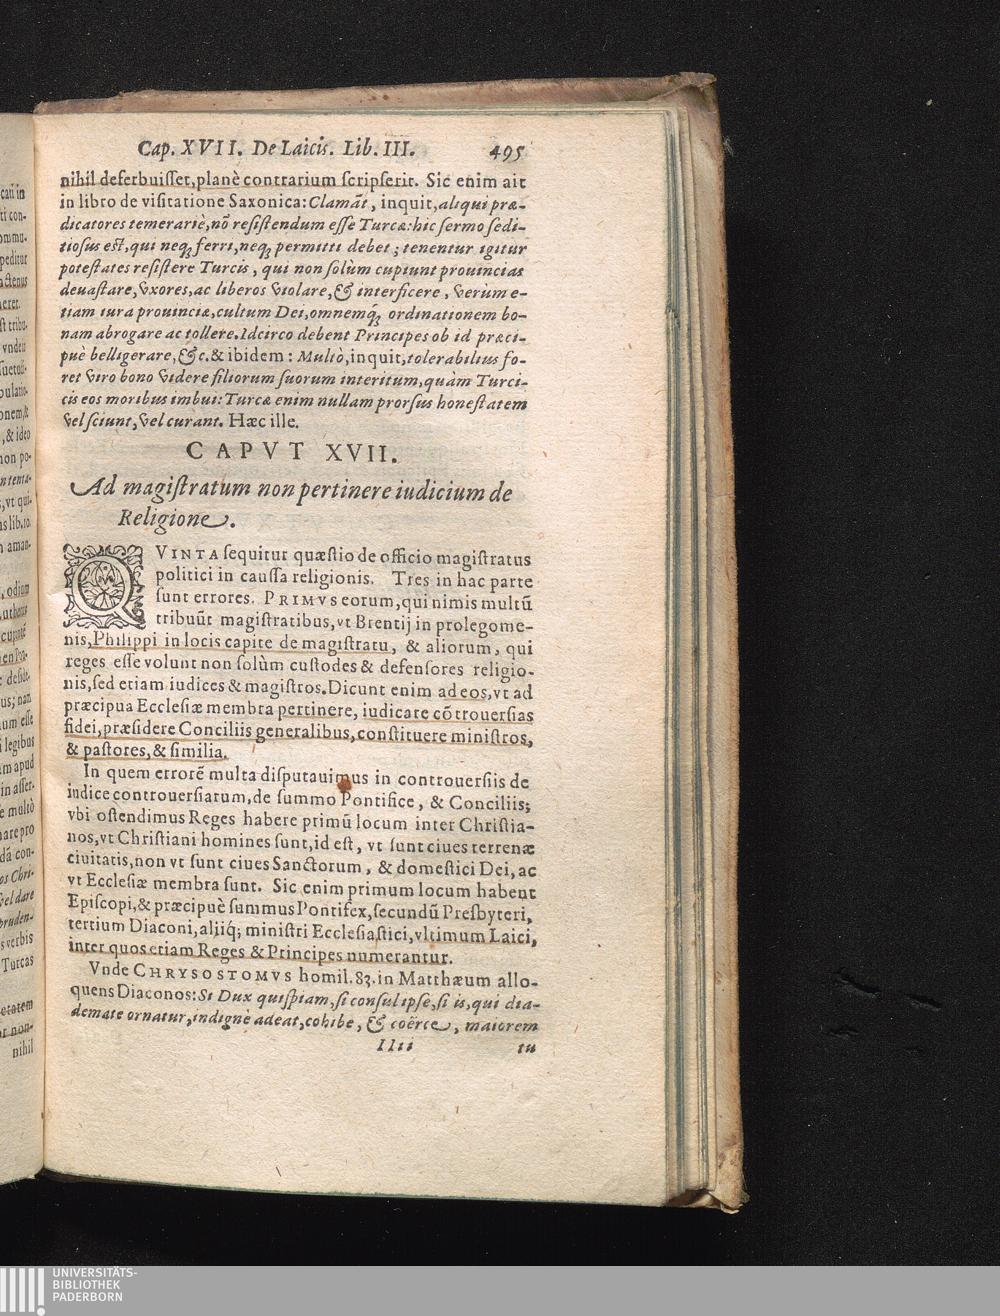 Cap. XVII. De Laicis. Lib. III. 495
nihil deferbuisset, planè contrarium scripserit. Sic enim ait
in libro de visitatione Saxonica: Clamāt, inquit, aliqui præ-
dicatores temerariè, nō resistendum esse Turcæ: hic sermo sedi-
tiosus est, qui neq; ferri, neq; permitti debet; tenentur igitur
potestates resistere Turcis, qui non solùm cupiunt prouincias
deuastare, vxores, ac liberos violare, & interficere, verùm e-
tiam iura prouinciæ, cultum Dei, omnemq; ordinationem bo-
nam abrogare ac tollere. Idcirco debent Principes ob id præci-
puè belligerare, &c. & ibidem: Multò, inquit, tolerabilius fo-
ret viro bono videre filiorum suorum interitum, quàm Turci-
cis eos moribus imbui: Turcæ enim nullam prorsus honestatem
vel sciunt, vel curant. Hæc ille.
CAPVT XVII.
Ad magistratum non pertinere iudicium de
Religione.
QVINTA sequitur quæstio de officio magistratus
politici in caussa religionis. Tres in hac parte
sunt errores. PRIMVS eorum, qui nimis multū
tribuūt magistratibus, vt Brentij in prolegome-
nis, Philippi in locis capite de magistratu, & aliorum, qui
reges esse volunt non solùm custodes & defensores religio-
nis, sed etiam iudices & magistros. Dicunt enim ad eos, vt ad
præcipua Ecclesiæ membra pertinere, iudicare cōtrouersias
fidei, præsidere Conciliis generalibus, constituere ministros,
& pastores, & similia.
In quem errorē multa disputauimus in controuersiis de
iudice controuersiarum, de summo Pontifice, & Conciliis;
vbi ostendimus Reges habere primū locum inter Christia-
nos, vt Christiani homines sunt, id est, vt sunt ciues terrenæ
ciuitatis, non vt sunt ciues Sanctorum, & domestici Dei, ac
vt Ecclesiæ membra sunt. Sic enim primum locum habent
Episcopi, & præcipuè summus Pontifex, secundū Presbyteri,
tertium Diaconi, aliiq; ministri Ecclesiastici, vltimum Laici,
inter quos etiam Reges & Principes numerantur.
Vnde CHRYSOSTOMVS homil. 83. in Matthæum allo-
quens Diaconos: Si Dux quispiam, si consul ipse, si is, qui dia-
demate ornatur, indignè adeat, cohibe, & coërce, maiorem
Iiii tu
UNIVERSITÄTS-
BIBLIOTHEK
PADERBORN